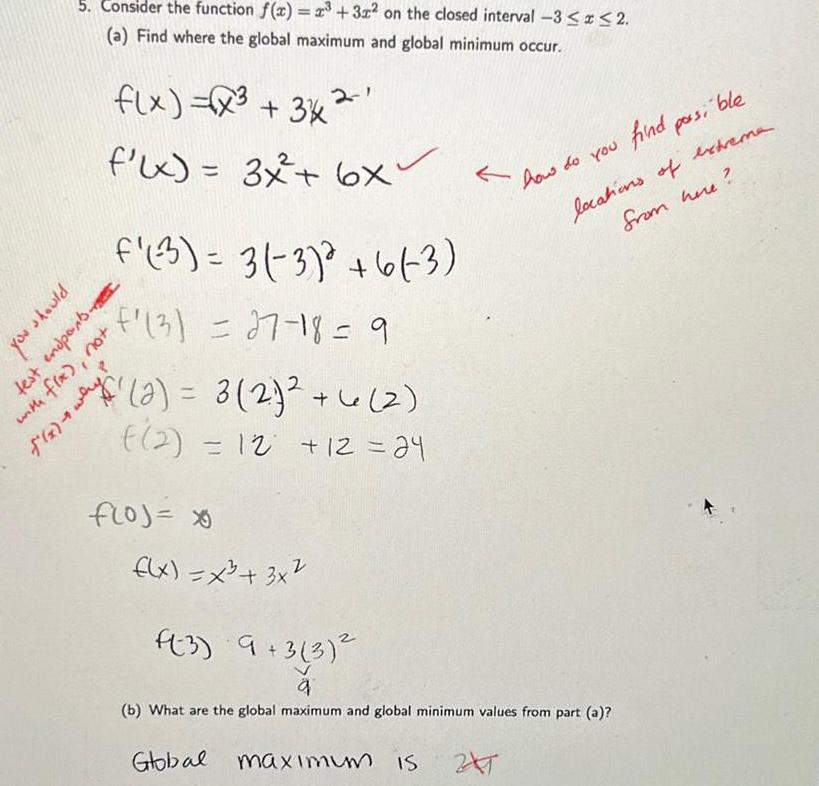 5. Consider the function f(x) = x³ + 3x² on the closed interval −3 ≤ x ≤ 2.
(a) Find where the global maximum and global minimum occur.
f(x) = x³ + 3x²⁻¹
f'(x) = 3x² + 6x ✓
← how do you find possible
locations of extrema
from here?
f'(-3) = 3(-3)² + 6(-3)
you should
test endpoints
with f(x), not
f'(x) → why?
f'(3) = 27-18 = 9
f'(2) = 3(2)² + 6(2)
f(2) = 12 + 12 = 24
f(0) =
f(x) = x³ + 3x²
f(-3) 9 + 3(3)²
9
(b) What are the global maximum and global minimum values from part (a)?
Global maximum is